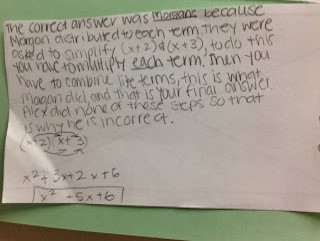 The correct answer was Morgans because
Morgan distributed to each term, they were
asked to simplify (x+2)&(x+3), to do this
you have to multiply each term. Then you
have to combine like terms, this is what
Morgan did, and that is your final answer.
Alex did none of these steps so that
is why he is incorrect.
(x+2)(x+3)
x²+3x+2x+6
x²+5x+6